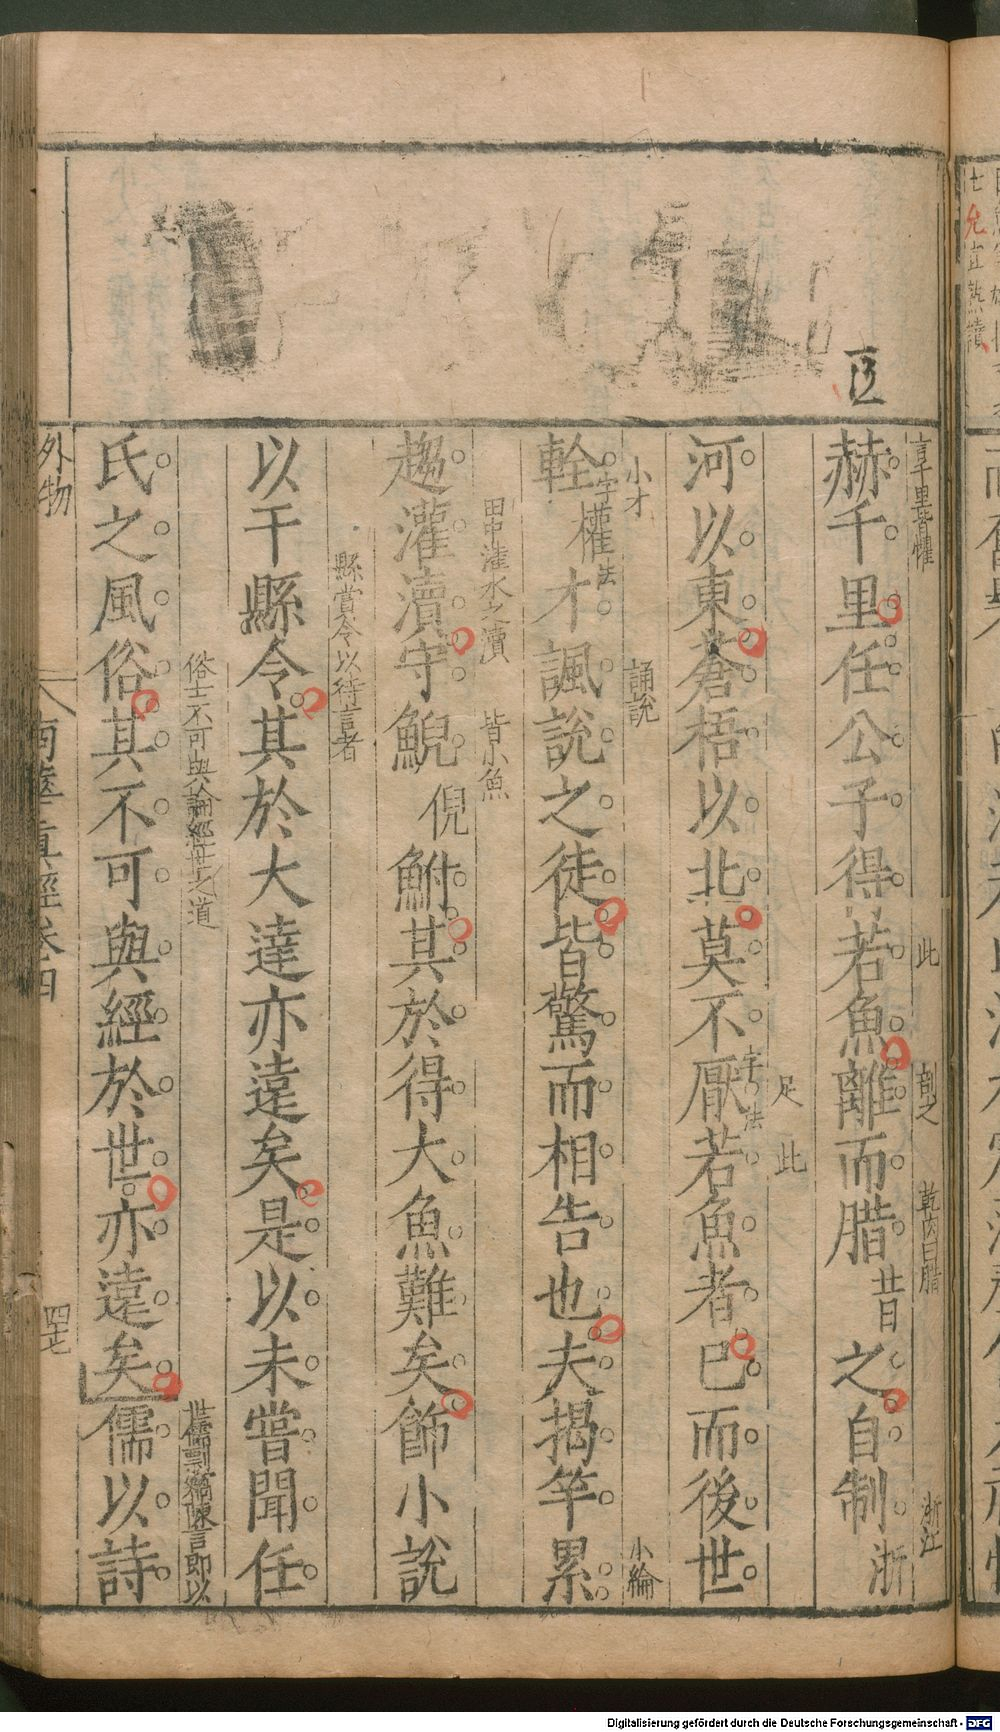 言千里皆懼
此
剖之
乾肉曰腊
浙江
赫千里任公子得若魚離而腊昔之自制浙
足
此
河以東蒼梧以北莫不厭若魚者已而後世
字法
小才
誦說
小綸
輇權才諷說之徒皆驚而相告也夫揭竿累
字法
田中灌水之瀆
皆小魚
趨灌瀆守鯢倪鮒其於得大魚難矣飾小說
縣賞令以待言者
以干縣令其於大達亦遠矣是以未嘗聞任
俗士不可與論經世之道
世儒剽竊陳言即以
氏之風俗其不可與經於世亦遠矣儒以詩
外物
南華真經卷四
四七
Digitalisierung gefördert durch die Deutsche Forschungsgemeinschaft - DFG